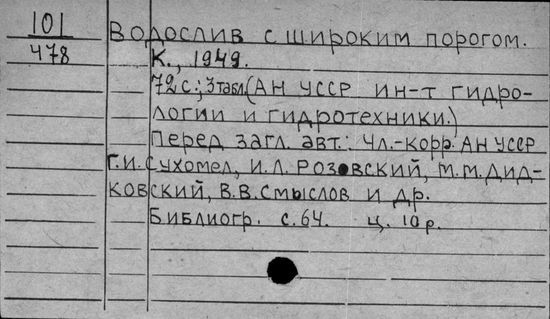 101
478
Водослив с широким порогом.
К., 1949.
72 с.; 3 табл. (АН УССР ин-т гидро-
логии и гидротехники.)
Перед загл. авт.: Чл.-корр. АН УССР
Г.И. Сухомел, И.Л. Розовский, М.М. Дид-
ковский, В.В. Смыслов и др.
Библиогр. с. 64. ц. 10 р.